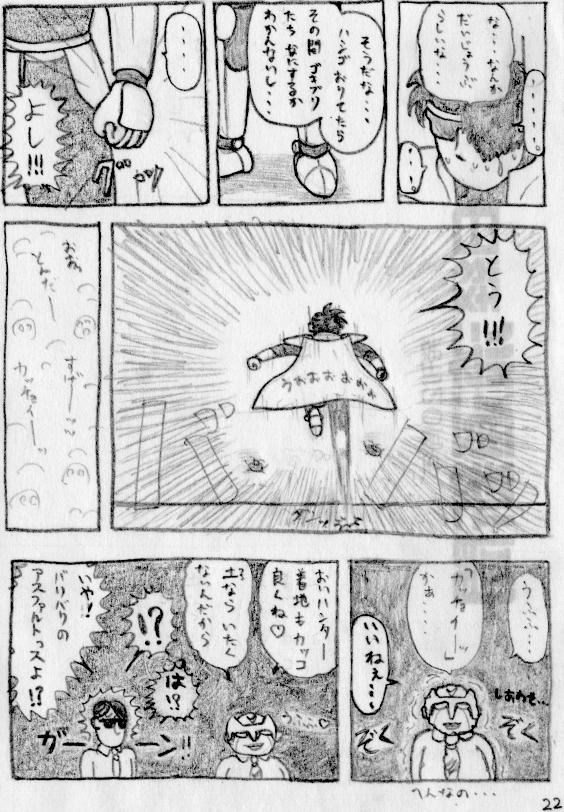 な・・なんか
だいじょうぶ
らしいな・・
・・・・・。
・・・
そうだな・・・
ハシゴ おりてたら
その間 ゴキブリ
たち なにするか
わかんないし・・・
・・・・
よし!!!
グッ
とう!!!
うおおおおおぉ
ゴゴ
ゴゴ
ゴゴ
おぉ、
とんだー
すげーッ
カッチョイーッ
うふふ・・・
「カッチョイーッ」
かぁ・・・・
いいねぇ・・・
しあわせ・・
ぞく
ぞく
へんなの・・・
おいハンター
着地もカッコ
良くね♡
土なら いたく
ないんだから
うふふ♡
!?
は!?
いや!!
バリバリの
アスファルトっスよ!?
ガーーン!!
22